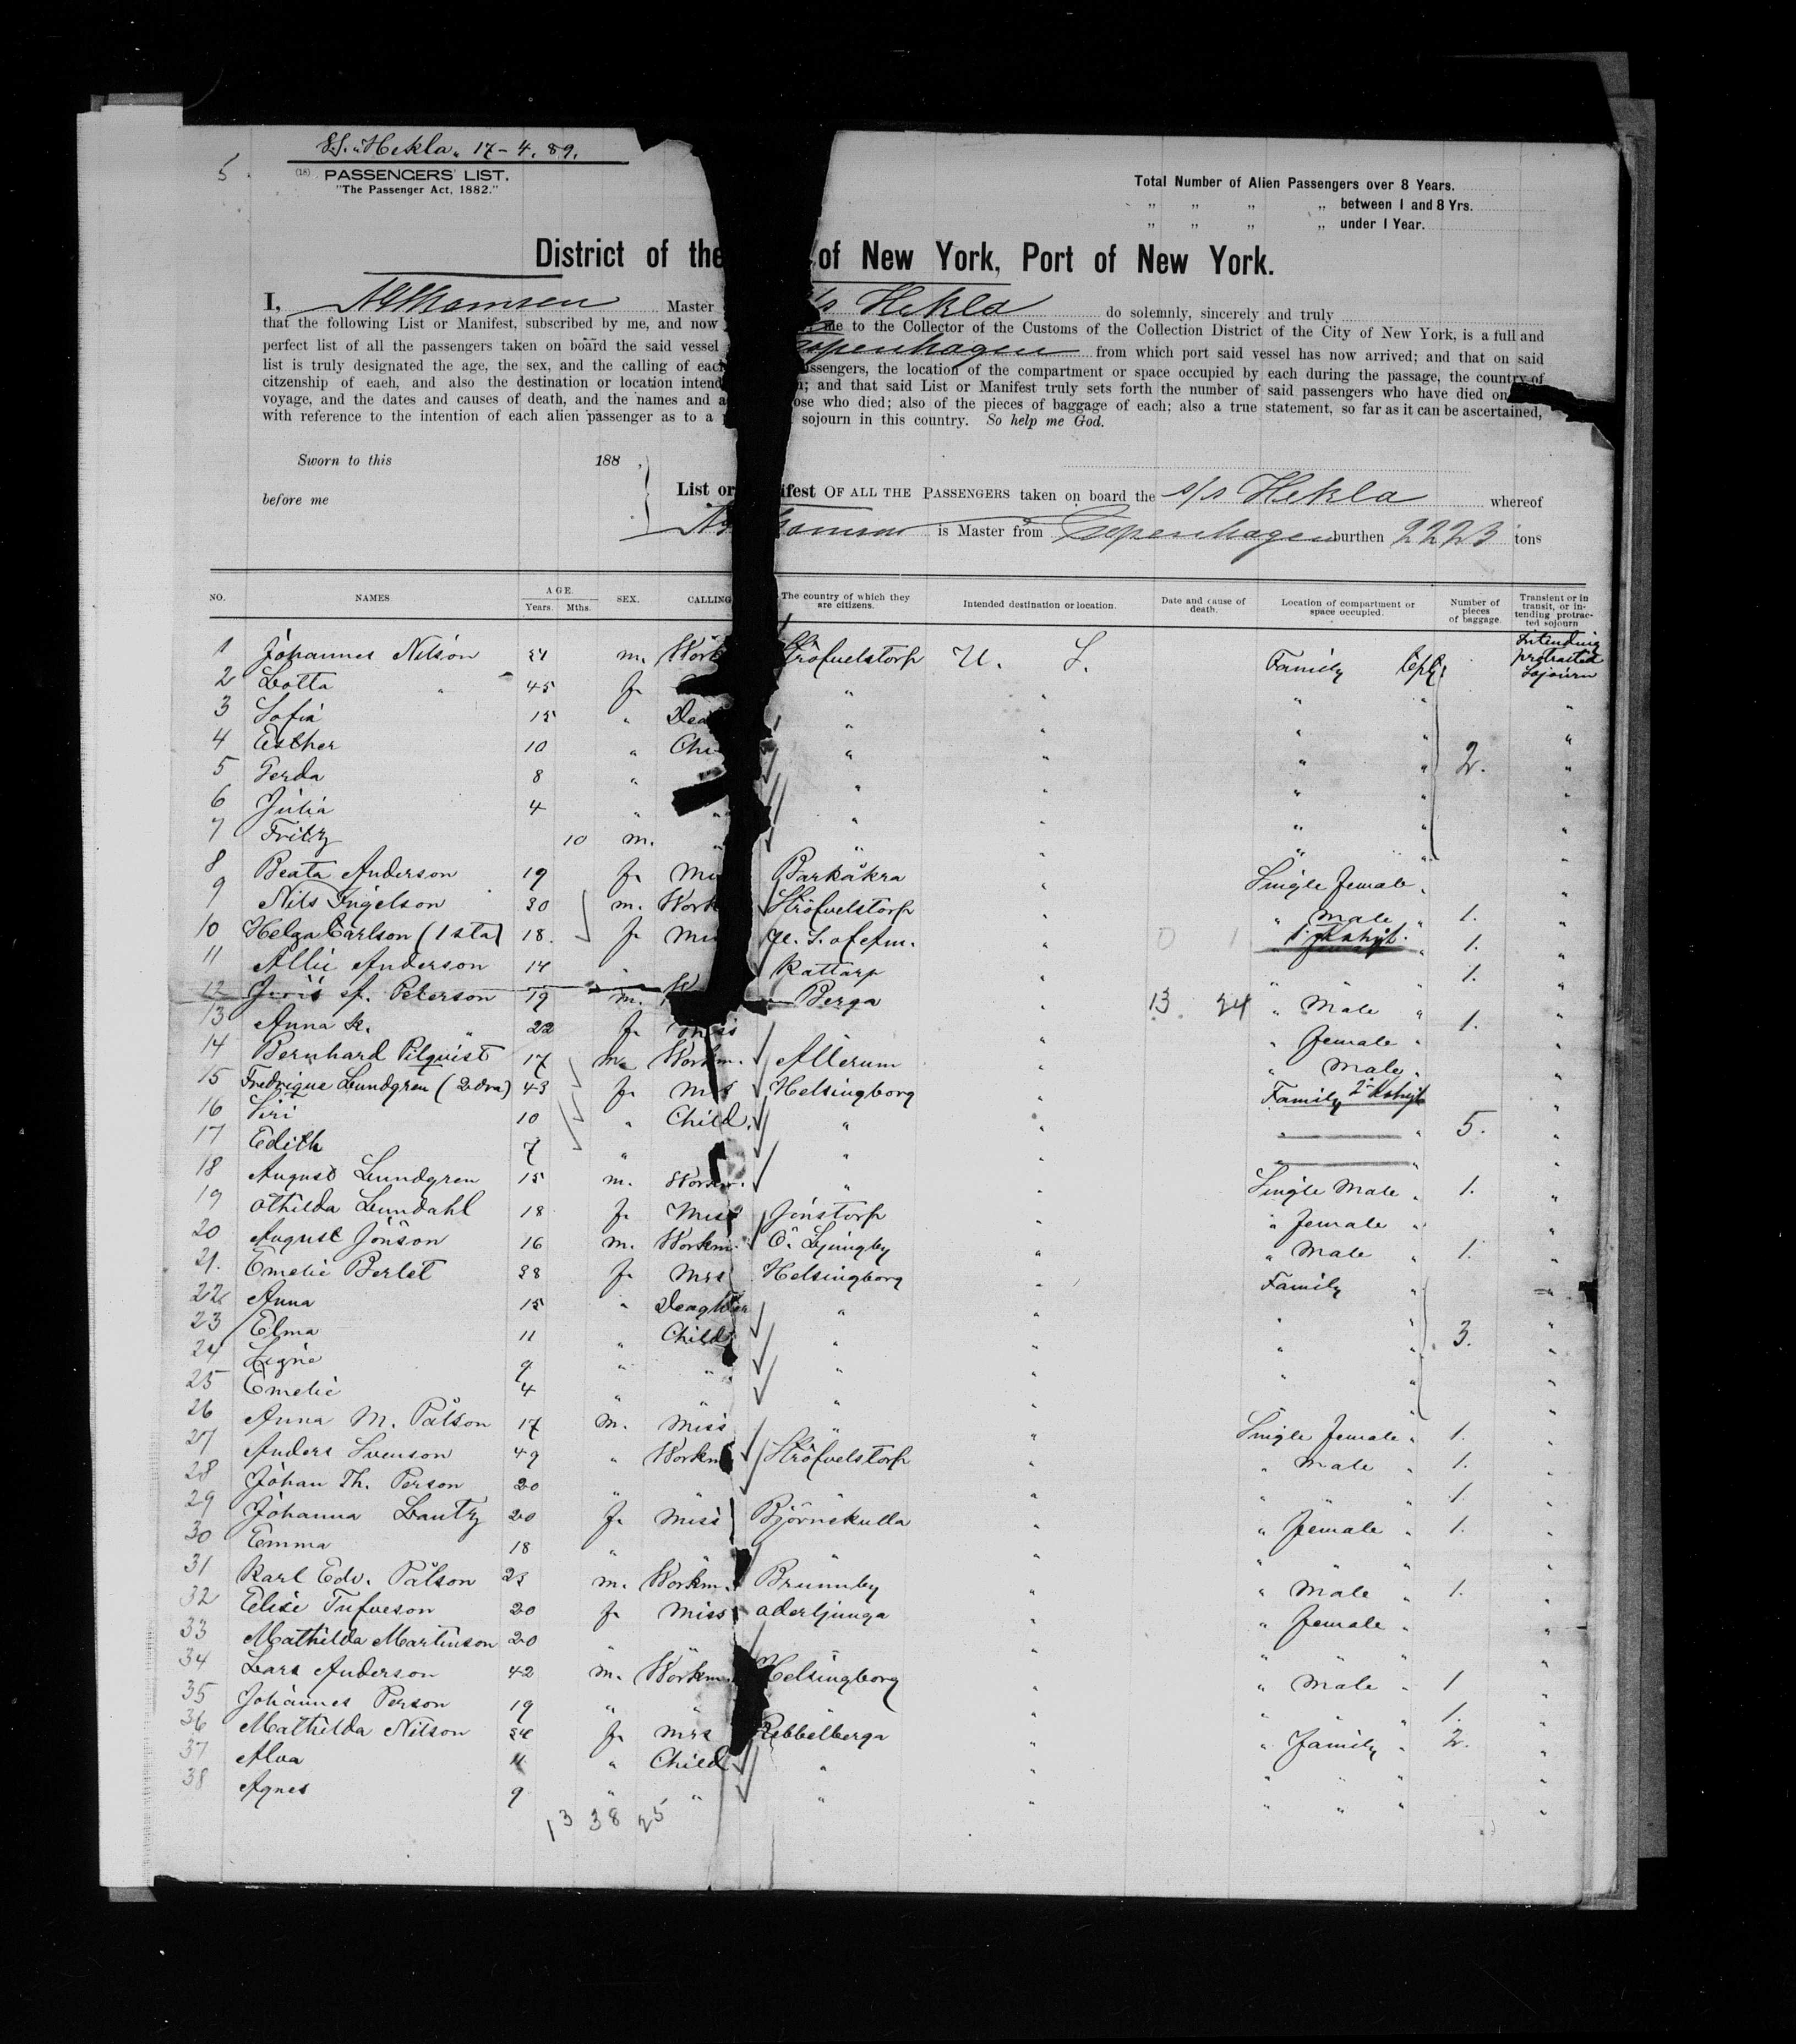 5.
S.S. "Hekla" 17-4.89.
(18) PASSENGERS' LIST.
"The Passenger Act, 1882."
Total Number of Alien Passengers over 8 Years.
" " " " between 1 and 8 Yrs.
" " " " under 1 Year.
District of the of New York, Port of New York.
I, Master s/s Hekla do solemnly, sincerely and truly
that the following List or Manifest, subscribed by me, and now me to the Collector of the Customs of the Collection District of the City of New York, is a full and
perfect list of all the passengers taken on board the said vessel Copenhagen from which port said vessel has now arrived; and that on said
list is truly designated the age, the sex, and the calling of each assengers, the location of the compartment or space occupied by each during the passage, the country of
citzenship of eaeh, and also the destination or location intend ; and that said List or Manifest truly sets forth the number of said passengers who have died on
voyage, and the dates and causes of death, and the names and a ose who died; also of the pieces of baggage of each; also a true statement, so far as it can be ascertained,
with reference to the intention of each alien passenger as to a sojourn in this country. So help me God.
Sworn to this 188 ,
before me
List or ifest OF ALL THE PASSENGERS taken on board the s/s Hekla whereof
is Master from Copenhagen burthen 2223 tons
NO. NAMES AGE. Years. Mths. SEX. CALLING The country of which they are citizens. Intended destination or location. Date and cause of death. Location of compartment or space occupied. Number of pieces of baggage. Transient or in transit, or intending protracted sojourn
1 Johannes Nilson m. Work Ströfvelstorp U. S. Family Cpt. Intending protracted Sojourn
2 Lotta " 45 f. " " " " "
3 Sofia 15 " Dea " " " " "
4 Esther 10 " Chi " " " " 2. "
5 Gerda 8 " " " " " "
6 Julia 4 " " " " " " "
7 Fritz 10 m. " " " " " "
8 Beata Anderson 19 f. Mi Barkåkra " Single female " "
9 Nils Ingelson 30 m. Work Ströfvelstorp " " Male " 1. "
10 Helga Carlson (1sta) 18. f. Mi U. S. of Am. " 0 1 1. "
11 Allie Anderson 14 " Kattarp " " " 1. "
12 A. Peterson 19 m. W Berga " 13. 24 " Male " "
13 Anna K. " 22 f. Miss " female " 1. "
14 Bernhard Pilquist 17 m. Workm. Allerum " " Male " "
15 Fredrique Lundgren (2dra) 43 f. Mrs Helsingborg " Family "
16 Siri 10 " Child. " " " 5. "
17 Edith 7 " " " " "
18 August Lundgren 15 m. Workm. " " Single Male " 1. "
19 Othilda Lundahl 18 f. Miss Jonstorp " " female " "
20 August Jönson 16 m. Workm. Ö. Ljungby " " Male " 1. "
21. Emelie Berlet 38 f. Mrs Helsingborg " Family " "
22 Anna 15 " Daughter " " " " "
23 Elma 11 " Child " " " " 3. "
24 Signe 9 " " " " " " "
25 Emelie 4 " " " " "
26 Anna M. Pålson 17 m. Miss " " Single female " 1. "
27 Anders Svenson 49 " Workm Ströfvelstorp " " Male " 1. "
28 Johan Th. Person 20 " " " " " " " 1. "
29 Johanna Lautz 20 f. Miss Björnekulla " " female " 1. "
30 Emma 18 " " " " " "
31 Karl Edv. Pålson 23 m. Workm. Brunnby " " Male " 1. "
32 Elise Tufveson 20 f. Miss Oderljunga " " female " "
33 Mathilda Martinson 20 " " " " " "
34 Lars Anderson 42 m. Workm. Helsingborg " " Male " 1 "
35 Johannes Person 19 " " " " " " 1. "
36 Mathilda Nilson f. Mrs Rebbelberga " " Family " 2. "
37 Alva 11 " Child " " " " " "
38 Agnes 9 " " " " " " " "
13 38 25